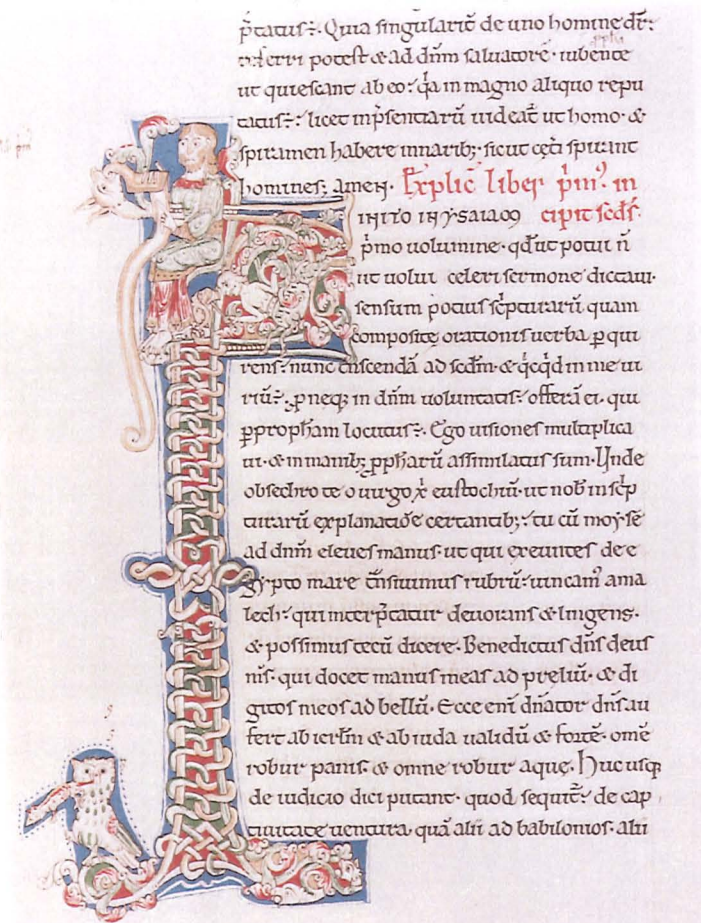 p̄tatus÷. Quia singularit̄ de uno homine dr̄:
referri potest & ad dn̄m saluatorē· iubente
ut quiescant ab eo· q̓a in magno aliquo repu
tatus÷: licet inp̄sentiarū uideat̄ ut homo· &
spiramen habere innarib;· sicut cęt̄i spirant
homines; amen. Explic̄ liber p̄m᷒. in
INITO IN YSAIAM cipit sc̄ds.
p̄mo uolumine· qd̄ ut potui n̄
ut uolui celeri sermone dictaui·
sensum potius sc̄pturarū quam
compositę orationis uerba ꝑqui
rens· nunc t̄nscendā ad sc̄dm· & q̓cq̓d in me ui
riū÷· ꝓ neq; in dn̄m uoluntatis÷ offerā ei· qui
ꝑ propħam locutus÷. Ego uisiones multiplica
ui· & in manib; ꝓpħarū assimilatus sum· Unde
obsecro te o uirgo xp̄i eustochiū· ut nob̄ in sc̄p
turarū explanatiōe certantib;· tu cū moyse
ad dn̄m eleues manus ut qui exeuntes de e
gypto mare t̄nsiuimus rubrū· uincam᷒ ama
lech· qui interp̄tatur deuorans & lingens·
& possimus tecū dicere· Benedictus dn̄s deus
n̄s· qui docet manus meas ad preliū· & di
gitos meos ad bellū· Ecce enī dn̄ator dn̄s au
fert ab ierl̄m & ab iuda ualidū & fortē· omē
robur panis· & omne robur aquę· Huc usq;
de iudicio dici putant· quod sequit̄· de cap
tiuitate uentura· quā alii ad babilonios· alii